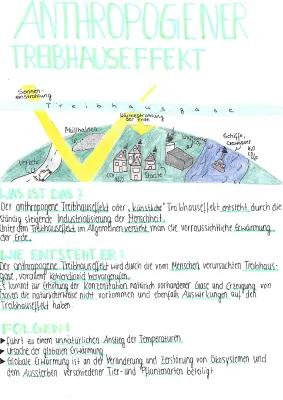 ANTHROPOGENER
TREIBHAUSEFFEKT
Sonnen
einstrahlung
Treibhausgase
Wärmestrahlung
der Erde
Müllhalden
Verkehr
Städte
Schiffe,
WAS IST DAS?
Der anthropogene Treibhauseffekt oder "künstliche" Treibhauseffekt entsteht durch die
ständig steigende Industrialisierung der Menschheit.
Unter dem Treibhauseffekt im Allgemeinen versteht man die voraussichtliche Erwärmung
der Erde.
WIE ENTSTEHT ER?
Der anthropogene Treibhauseffekt wird durch die vom Menschen verursachten Treibhaus-
gase, vorallem Kohlendioxid hervorgerufen.
Es kommt zur Erhöhung der Konzentration natürlich vorhandener Gase und Erzeugung von
Gasen die naturgemäß nicht vorkommen und ebenfalls Auswirkungen auf den
Treibhauseffekt haben.
FOLGEN!
▶ Führt zu einem unnatürlichen Anstieg der Temperaturen
▶ Ursache der globalen Erwärmung
▶ Globale Erwärmung ist an der Veränderung und Zerstörung von Ökosystemen und
dem Aussterben verschiedener Tier- und Pflanzenarten beteiligt